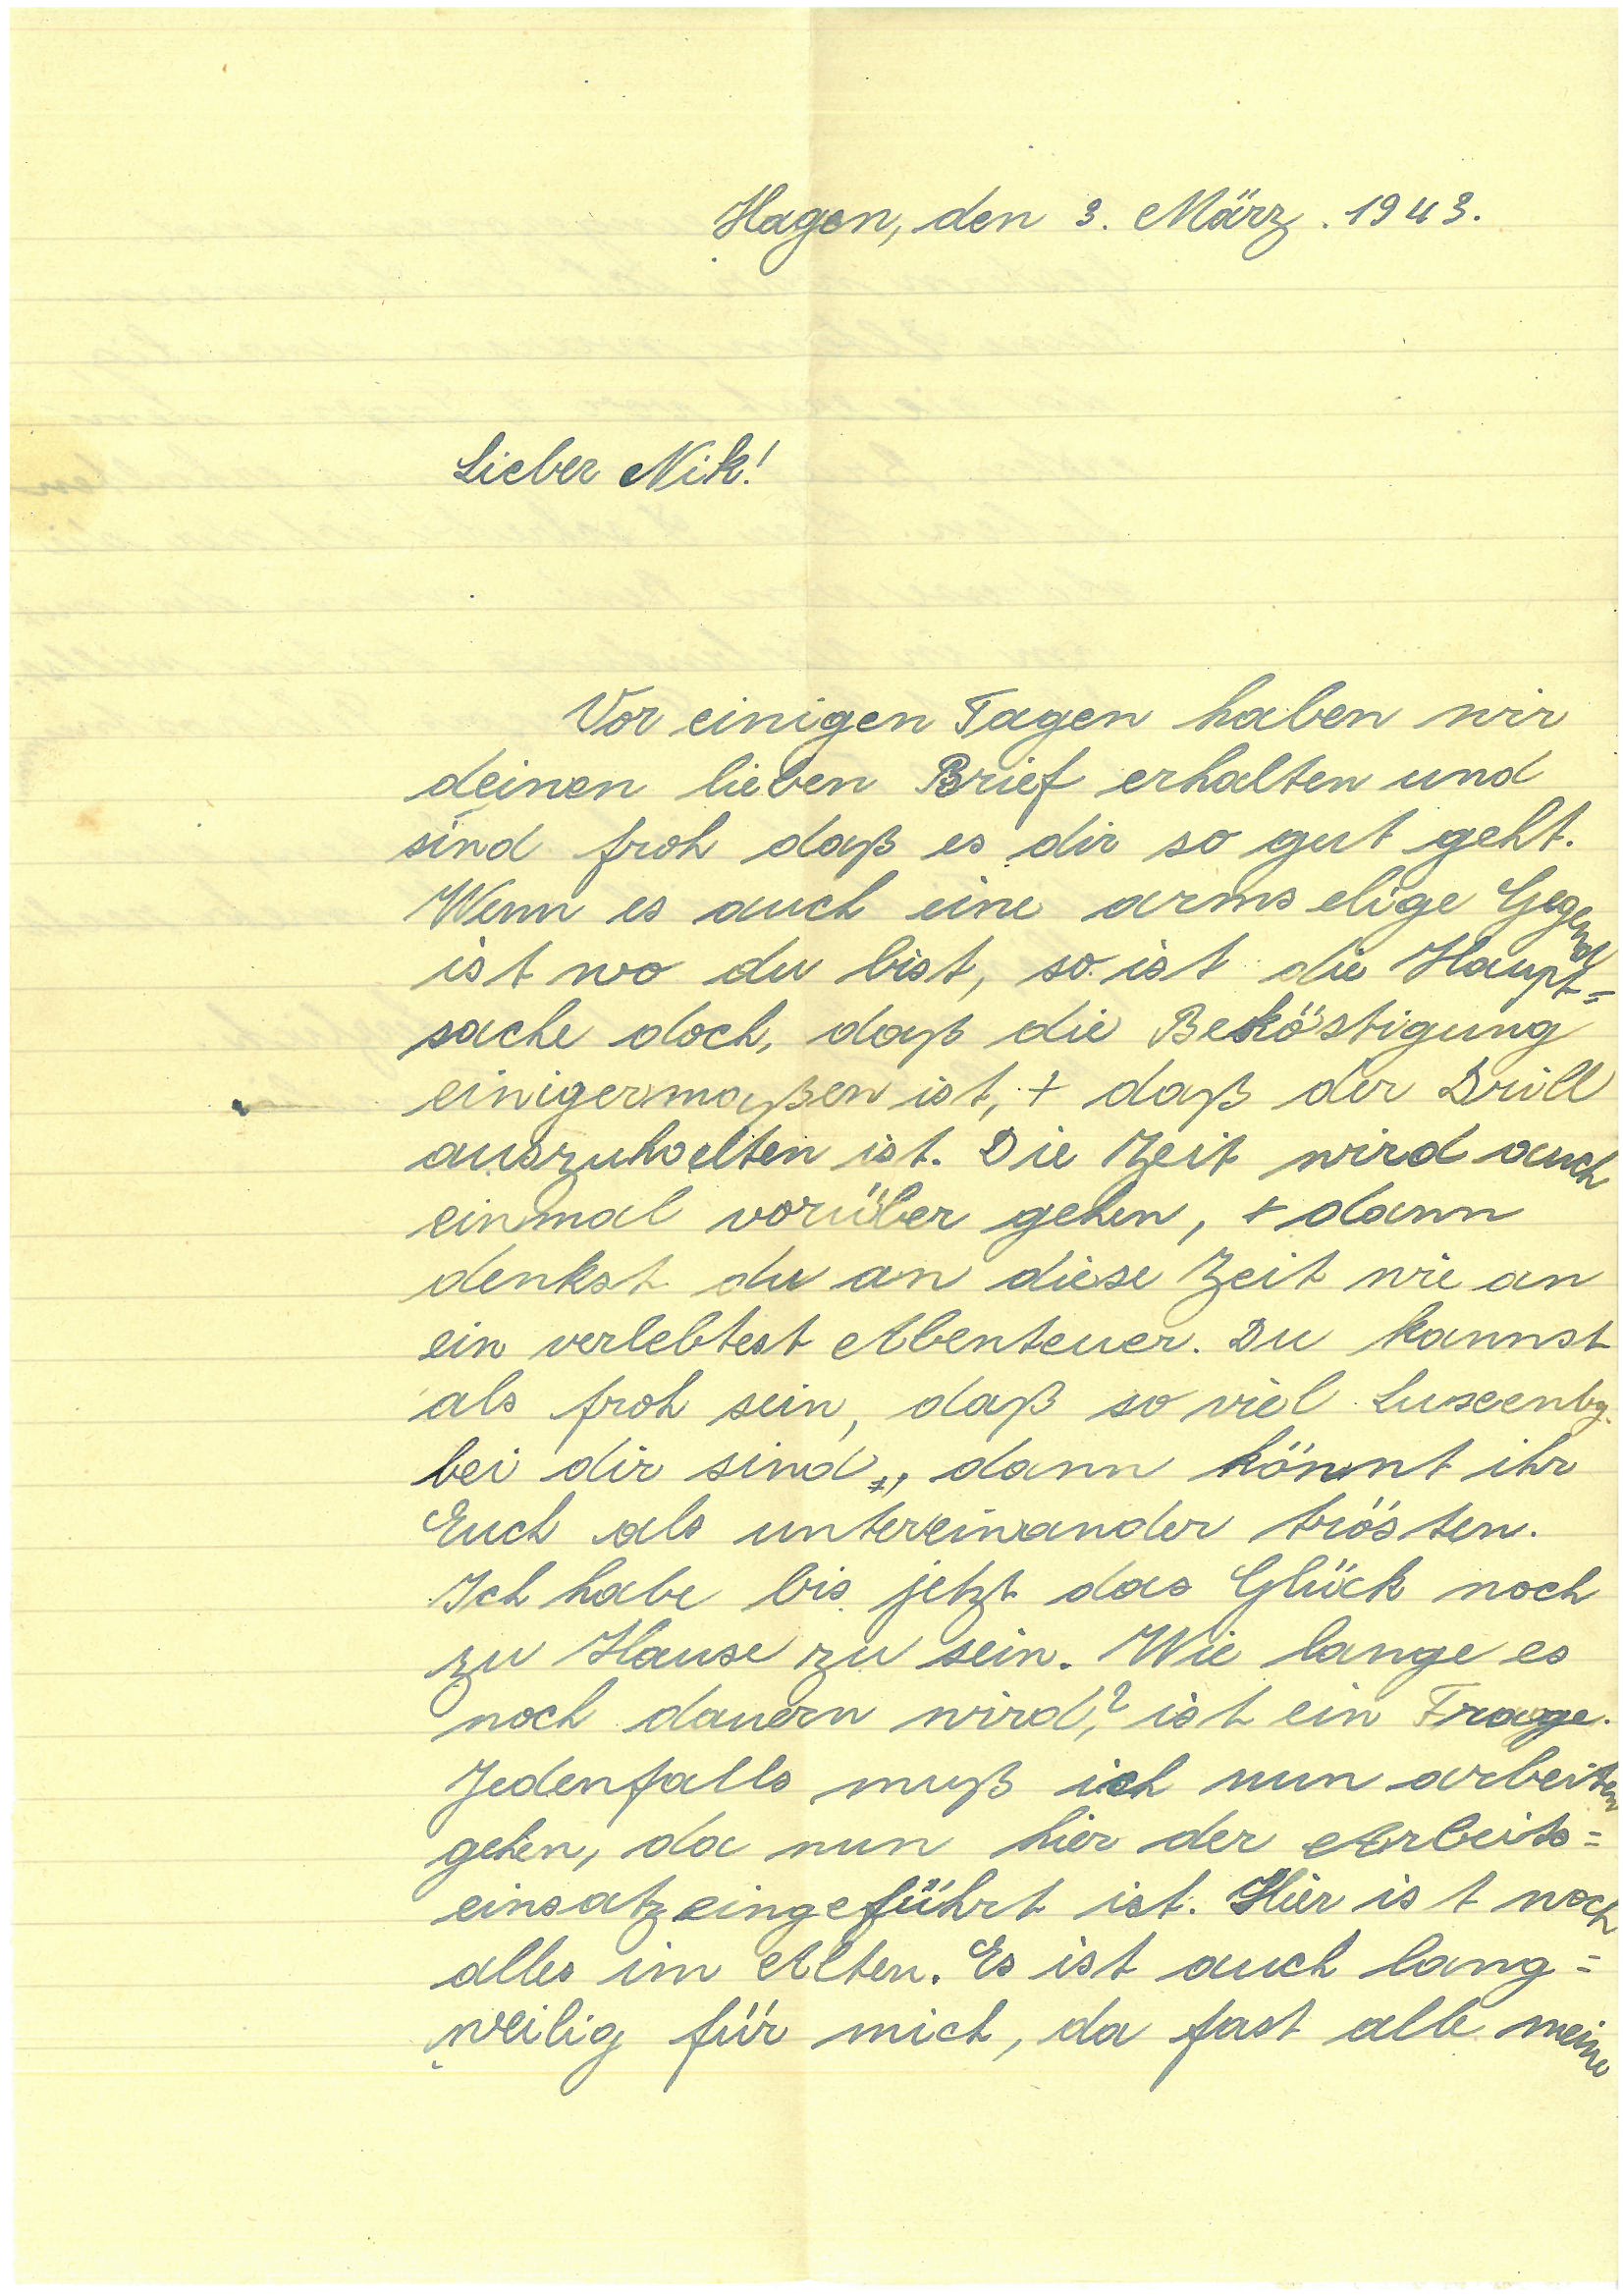 Hagen, den 3. März. 1943.
Lieber Nik!
Vor einigen Tagen haben wir
deinen lieben Brief erhalten und
sind froh daß es dir so gut geht.
Wenn es auch eine armselige Gegend
ist wo du bist, so ist die Haupt=
sache doch, daß die Beköstigung
einigermaßen ist, + daß der Drill
auszuhalten ist. Die Zeit wird auch
einmal vorüber gehen, + dann
denkst du an diese Zeit wie an
ein verlebtest Abenteuer. Du kannst
als froh sein, daß so viel Luxenbg.
bei dir sind, dann könnt ihr
Euch als untereinander trösten.
Ich habe bis jetzt das Glück noch
zu Hause zu sein. Wie lange es
noch dauern wird,? ist ein Frage.
Jedenfalls muß ich nun arbeiten
gehen, da nun hier der Arbeits=
einsatz eingeführt ist. Hier ist noch
alles im Alten. Es ist auch lang=
weilig für mich, da fast alle meine